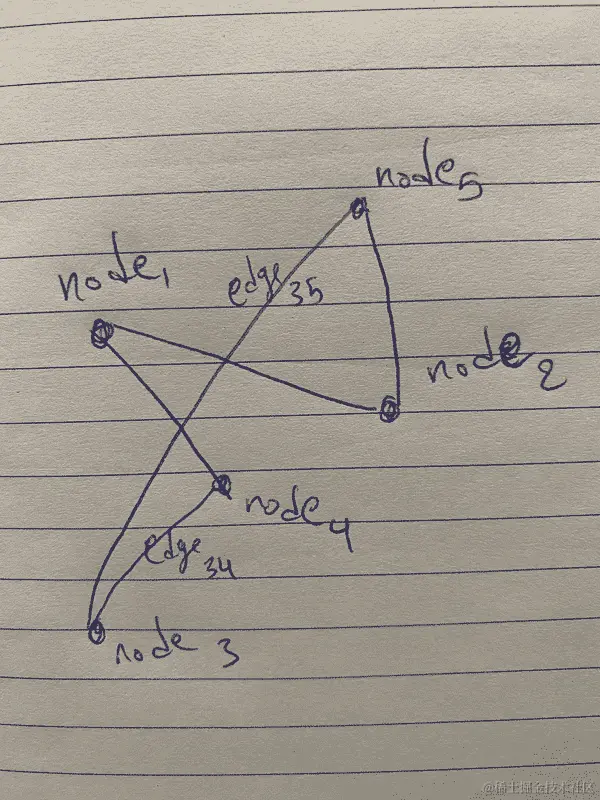 node5
node1
edge35
node2
node4
edge34
node 3
@稀土掘金技术社区